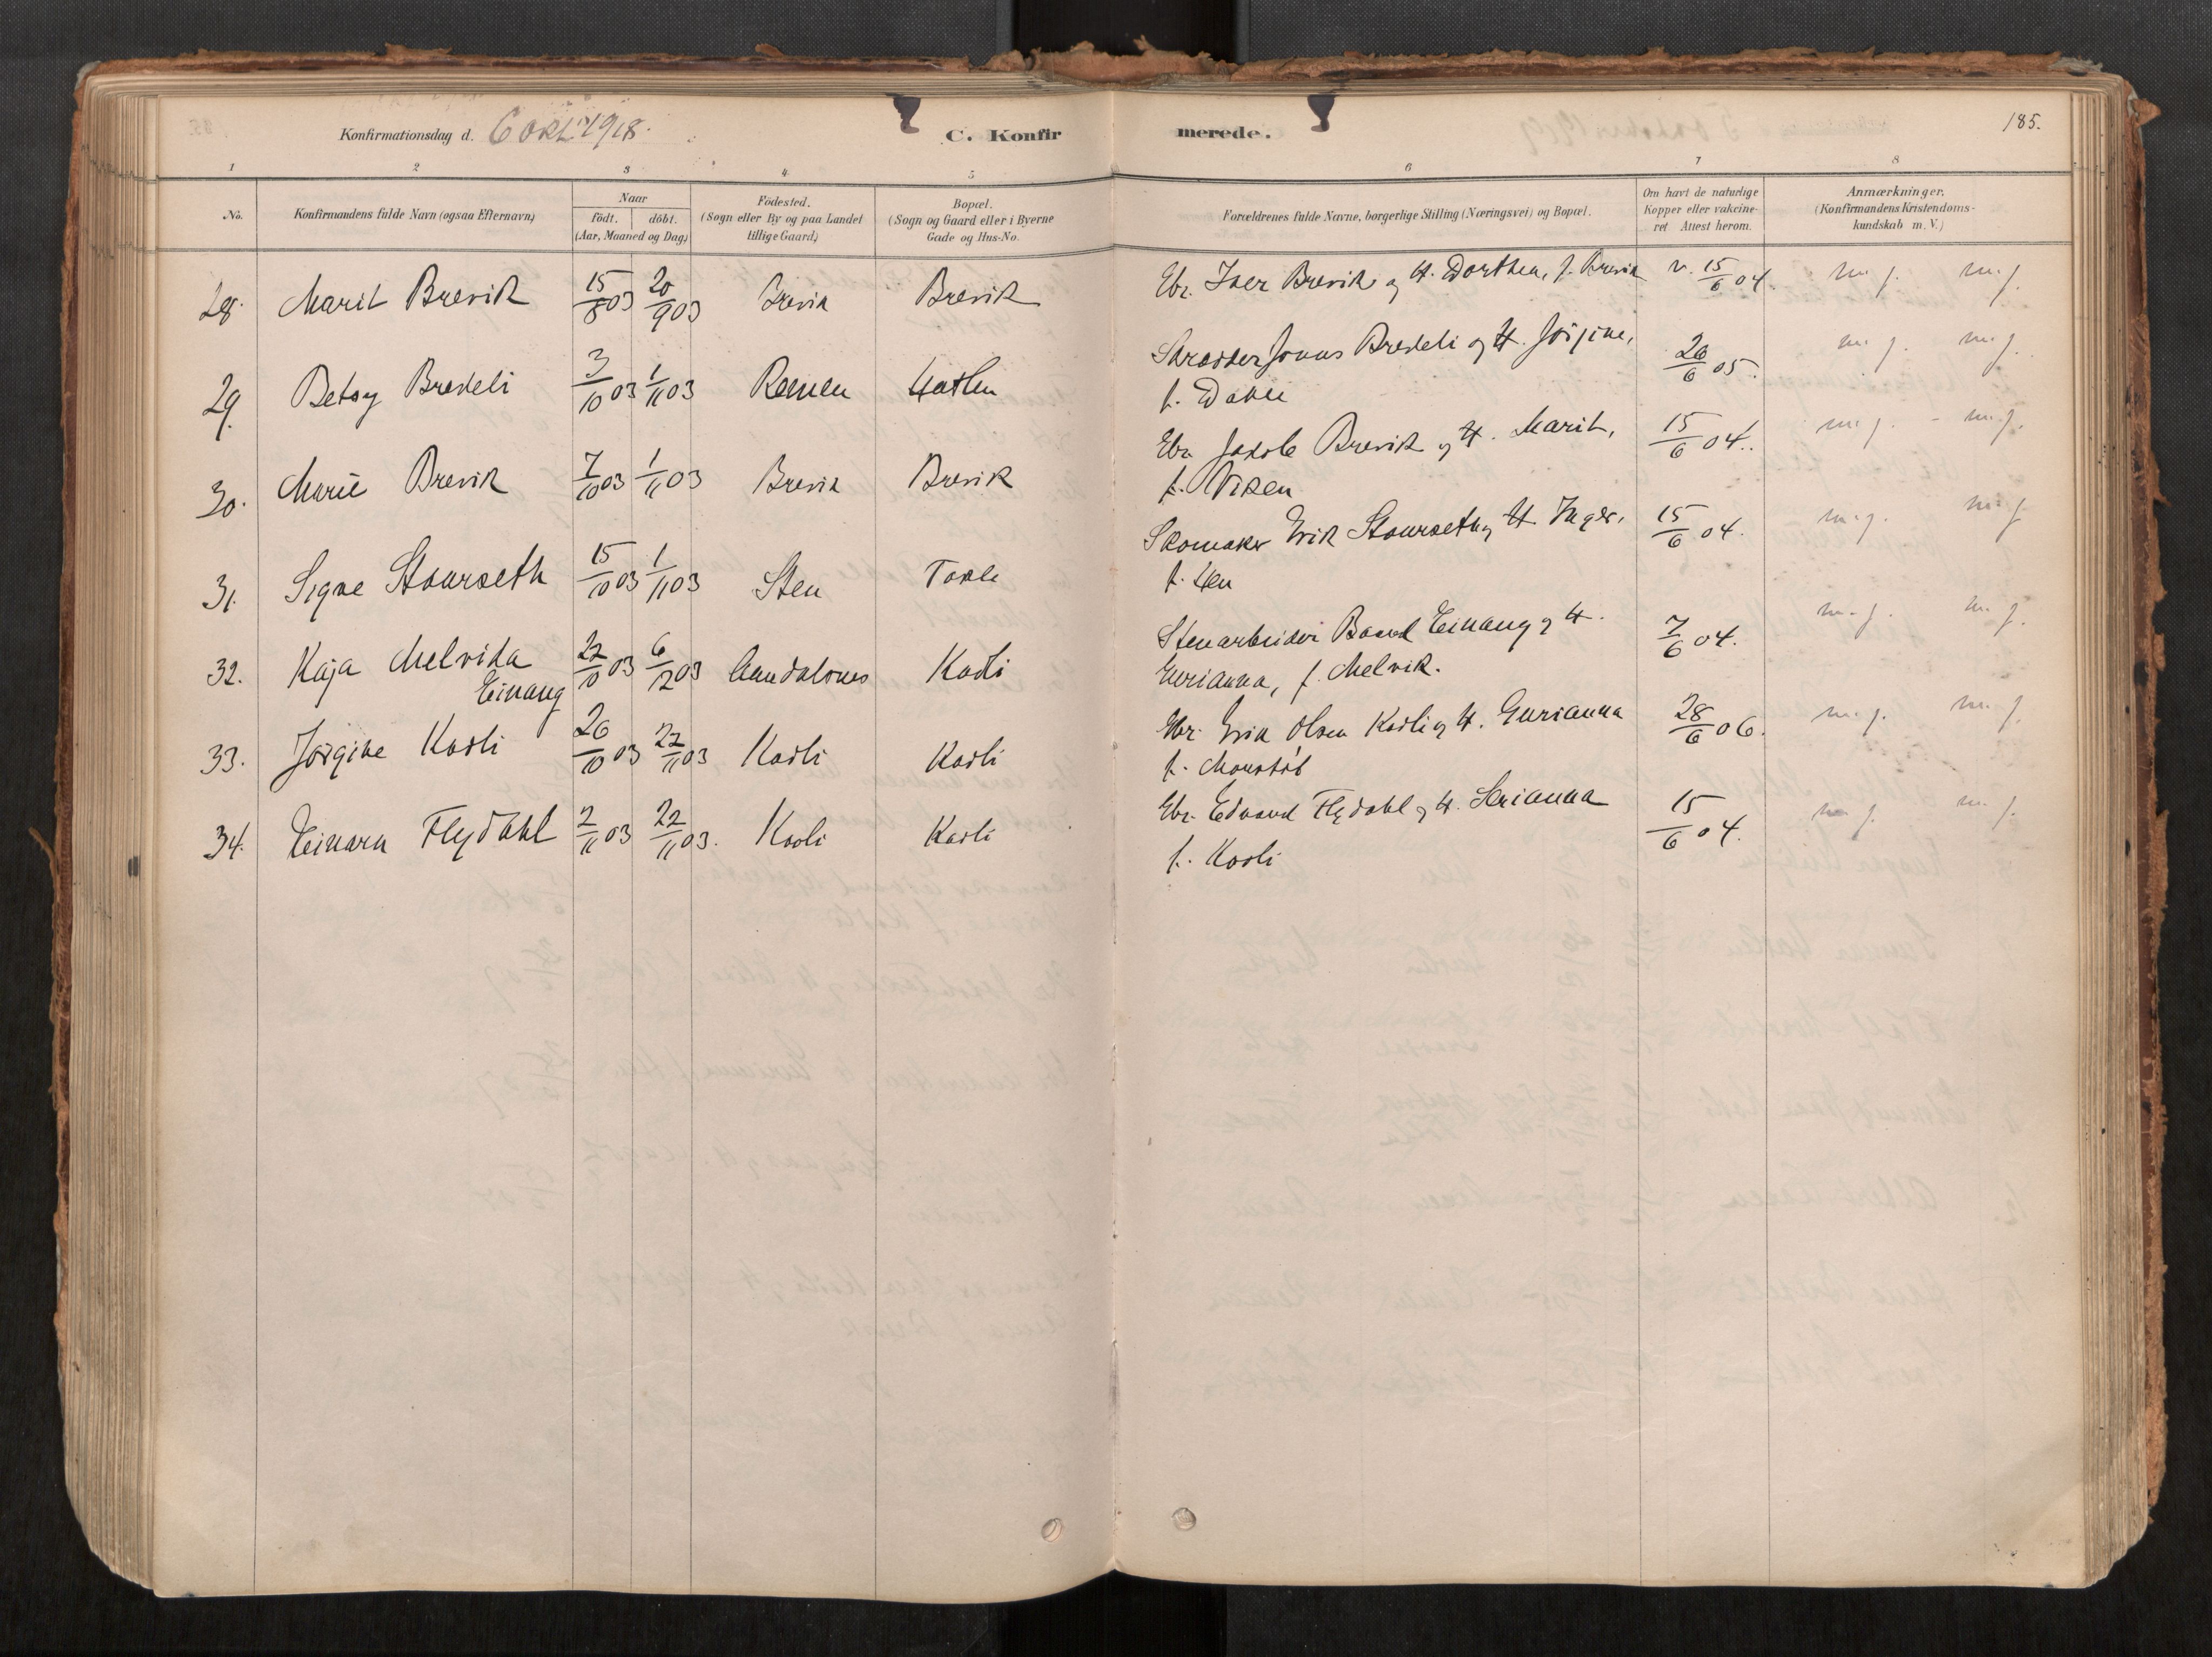 Konfirmationsdag d. 6 okt. 1918.
C. Konfirmerede.
185.
1 2 3 4 5 6 7 8
No.
Konfirmandens fulde Navn (ogsaa Efternavn)
Naar
födt. döbt.
(Aar, Maaned og Dag.)
Födested.
(Sogn eller By og paa Landet
tillige Gaard.)
Bopæl.
(Sogn og Gaard eller i Byerne
Gade og Hus-No.
Forældrenes fulde Navne, borgerlige Stilling (Næringsvei) og Bopæl.
Om havt de naturlige
Kopper eller vakcine-
ret Attest herom.
Anmærkninger.
(Konfirmandens Kristendoms-
kundskab m. V.)
28. Marit Brevik 15/8 03 20/9 03 Brevik Brevik Gbr. Iver Brevik og H. Dorthea, f. Brevik v. 15/6 04. m. g. m. g.
29. Betsy Bredeli 3/10 03 1/11 03 Remen Hatlen Skrædder Jonas Bredeli og H. Jörgine, 26/6 05. m. g. m. g.
f. Dahle
30. Marie Brevik 7/10 03 1/11 03 Brevik Brevik Gbr. Jakob Brevik og H. Marit, 15/6 04. m. g. - m. g.
f. Viken
31. Signe Stourseth 15/10 03 1/11 03 Sten Tokle Skomaker Erik Stourseth og H. Inger, 15/6 04. m. g. m. g.
f. Hen
32. Kaja Melvida 22/10 03 6/12 03 Aandalsnes Kosli Stenarbeider Baard Einang og H. 7/6 04. m. g. m. g.
Einang
Gurianna, f. Melvik.
33. Jörgine Kosli 26/10 03 22/11 03 Kosli Kosli Gbr. Erik Olsen Kosli og H. Gurianna 28/6 06. m. g. m. g.
f. Monstöl
34. Einara Flydahl 2/11 03 22/11 03. Kosli Kosli Gbr. Edvard Flydahl og H. Serianna 15/6 04. m. g. m. g.
f. Kosli